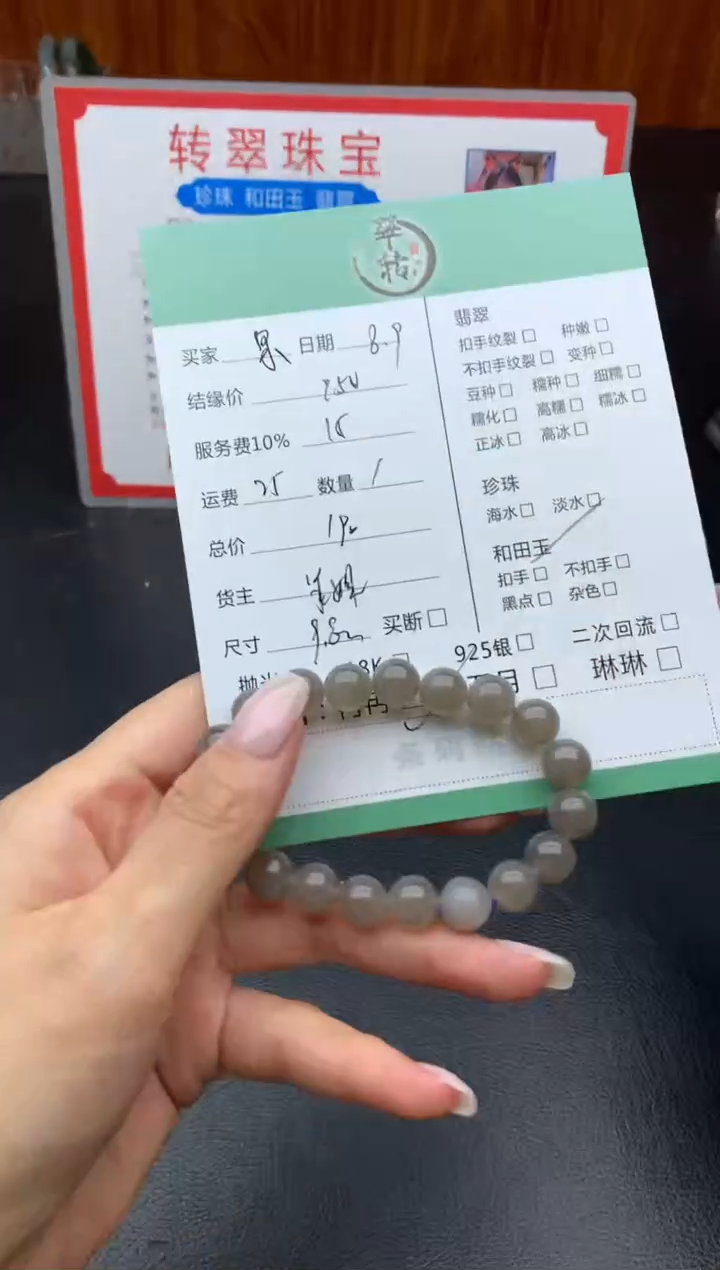 转翠珠宝
珍珠 和田玉 翡翠
翠转
买家 日期 8.9
结缘价 150
服务费10% 15
运费 25 数量 1
总价 190
货主
尺寸 9.8m 买断□
翡翠
扣手纹裂□ 种嫩□
不扣手纹裂□ 变种□
豆种□ 糯种□ 细糯□
糯化□ 高糯□ 糯冰□
正冰□ 高冰□
珍珠
海水□ 淡水□
和田玉
扣手□ 不扣手□
黑点□ 杂色□
925银□ 二次回流□
月□ 琳琳□